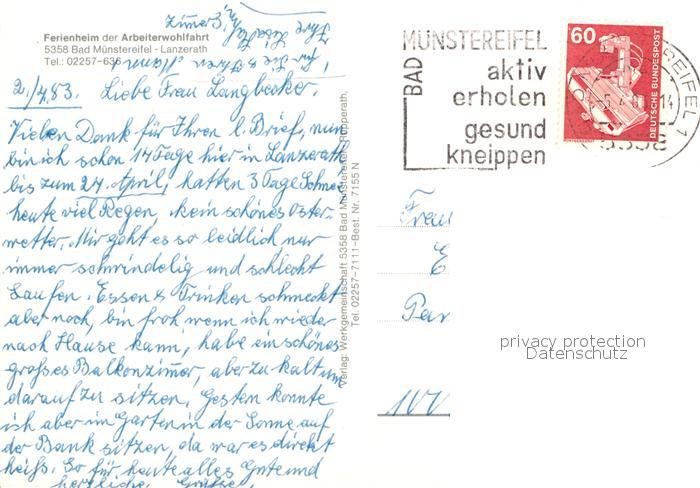 Ferienheim der Arbeiterwohlfahrt
5358 Bad Münstereifel - Lanzerath
Tel.: 02257-636
2./4.83. Liebe Frau Langbecker.
Vielen Dank für Ihren l. Brief, nun
bin ich schon 14 Tage hier in Lanzerath
bis zum 24. April, hatten 3 Tage Schnee
heute viel Regen, kein schönes Oster-
wetter. Mir geht es so leidlich, nur
immer schwindelig und schlecht
Laufen. Essen & Trinken schmeckt
aber noch, bin froh wenn ich wieder
nach Hause kann, habe ein schönes
großes Balkonzimmer, aber zu kalt um
darauf zu sitzen. Gestern konnte
ich aber im Garten in der Sonne auf
der Bank sitzen, da war es direkt
heiß. So für heute alles Gute und
herzliche Grüße,
Verlag: Werkgemeinschaft 5358 Bad Münstereifel-Rupperath,
Tel. 02257-7111-Best. Nr. 7155 N
BAD MÜNSTEREIFEL
aktiv
erholen
gesund
kneippen
60
DEUTSCHE BUNDESPOST
Frau
privacy protection
Datenschutz